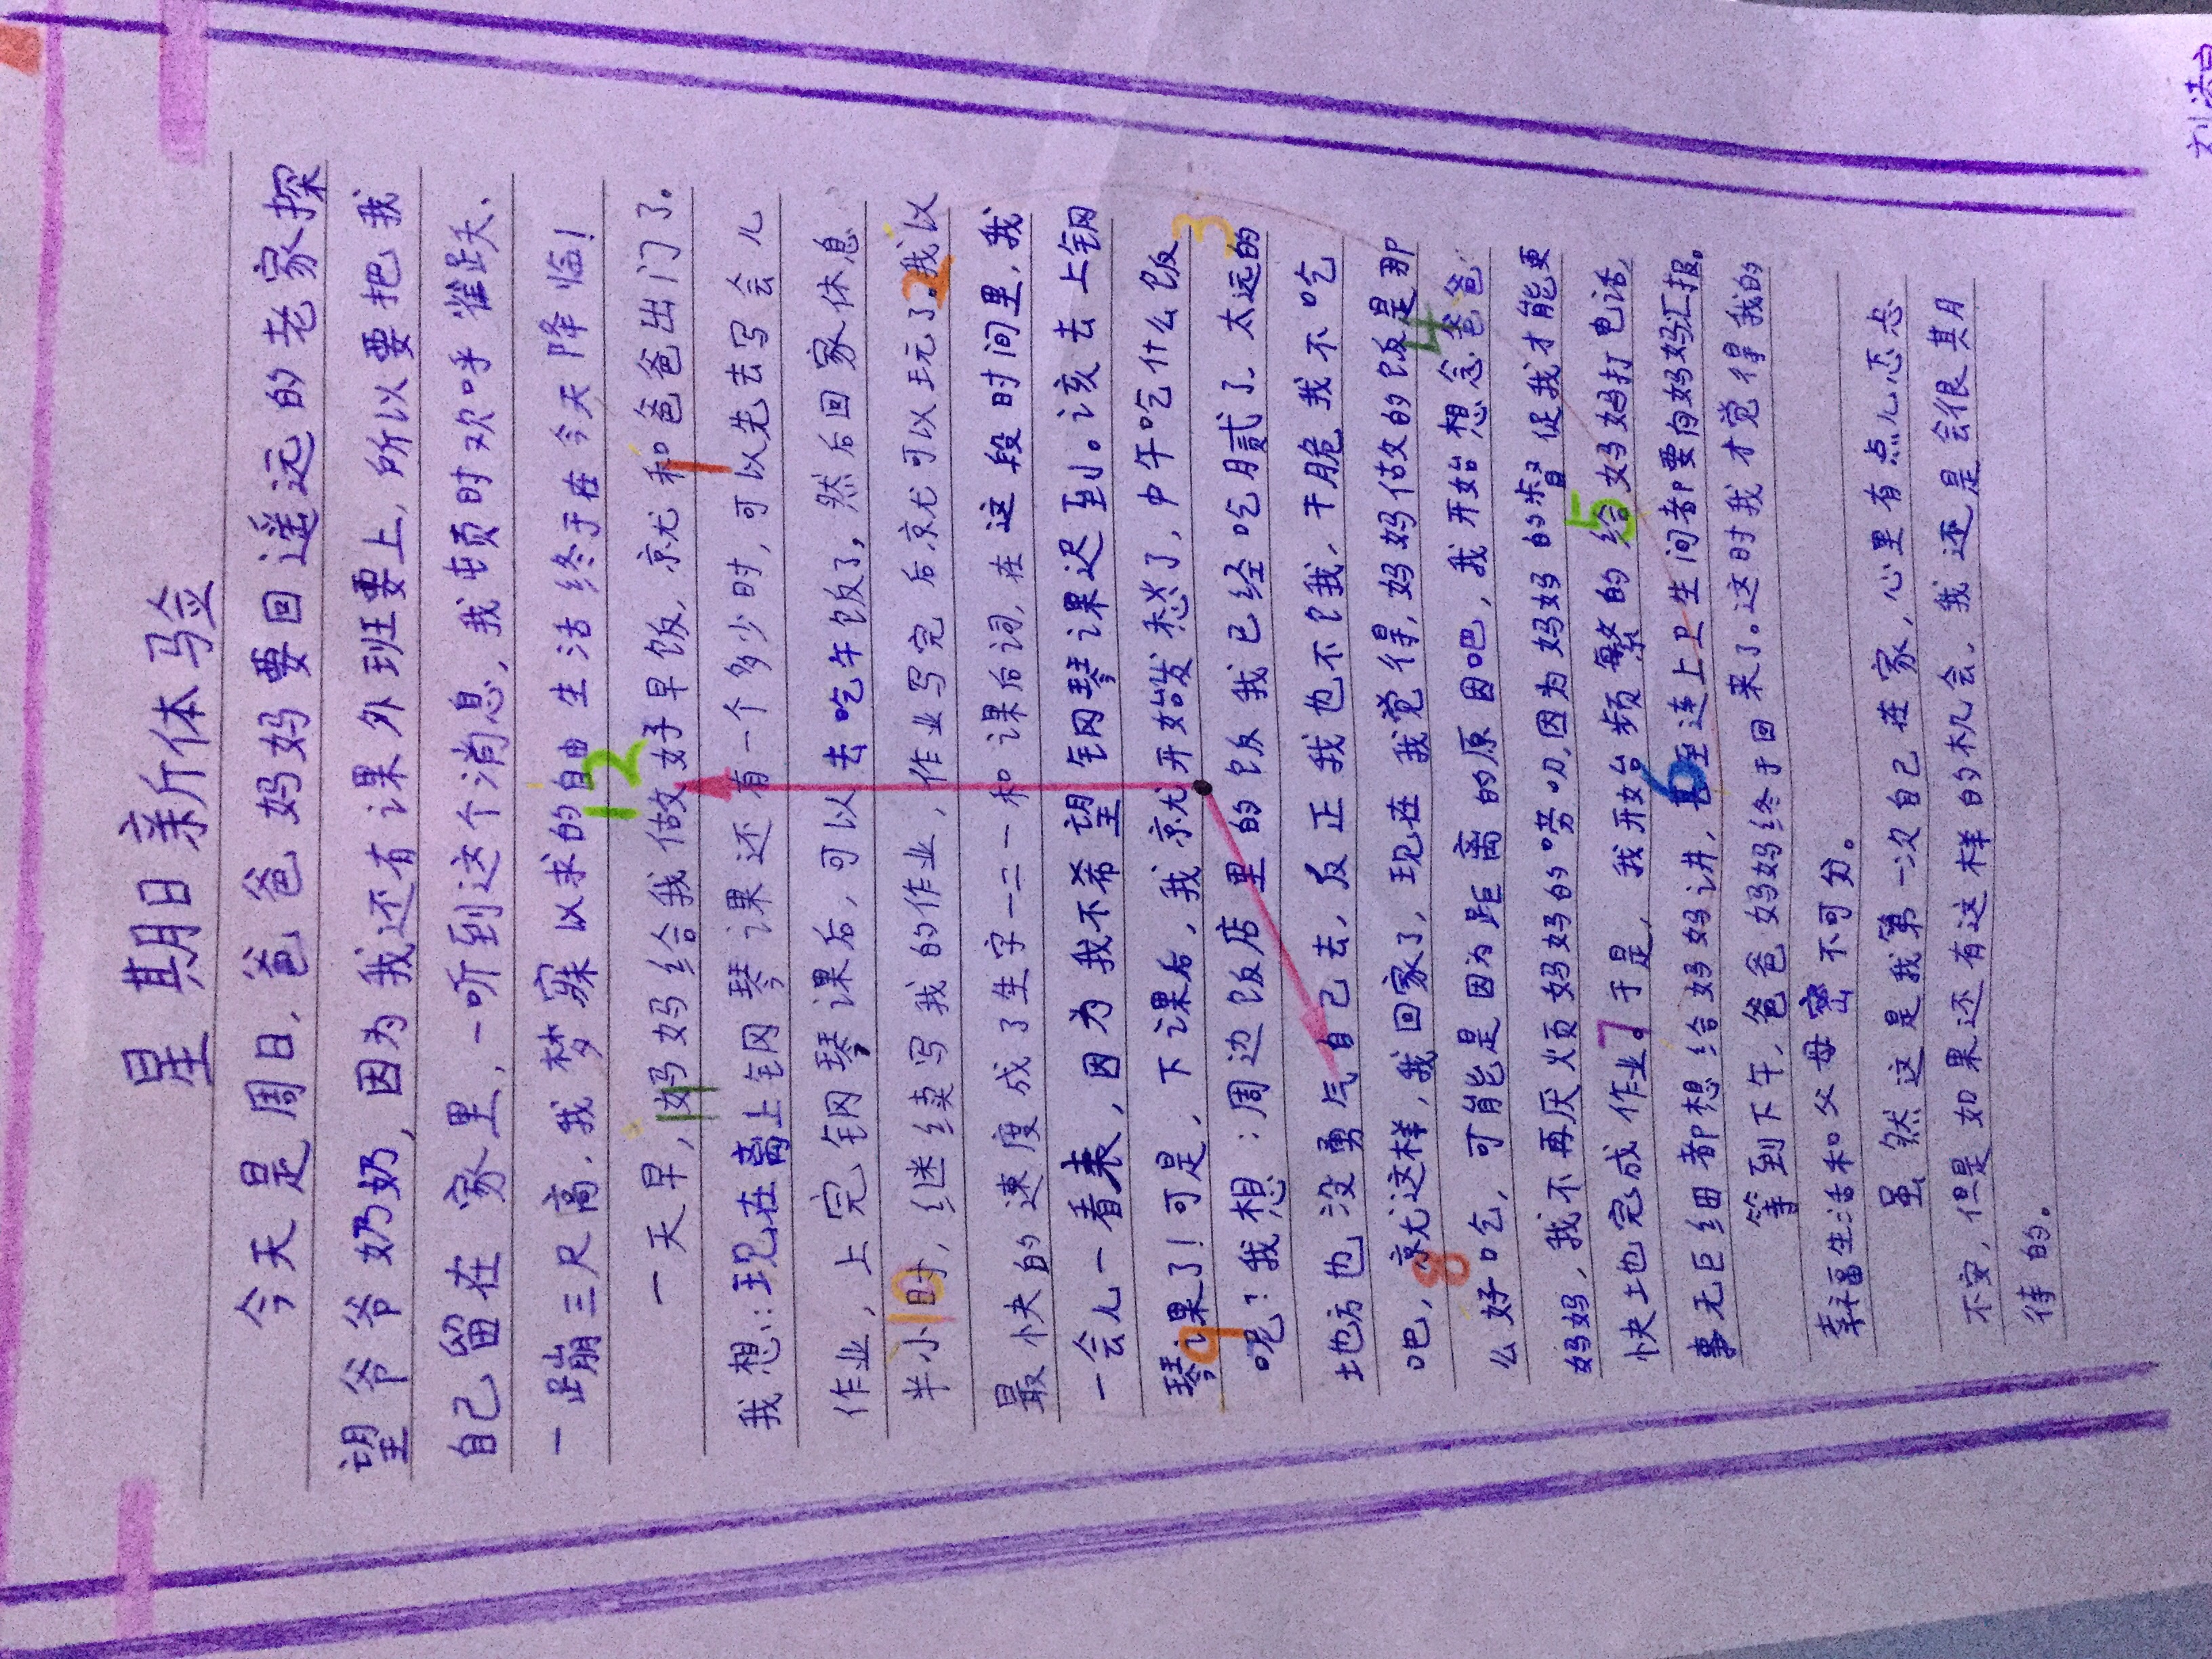 星期日新体马佥
今天是周日，爸爸妈妈要回遥远的老家探
望爷爷奶奶，因为我还有课外班要上，所以要把我
自己留在家里，一听到这个消息，我顿时欢呼雀跃、
一蹦三尺高，我梦寐以求的自由生活终于在今天降临！
一天早，妈妈给我做好早饭，就和爸爸出门了。
我想：现在离上钢琴课还有一个多少时，可以先去写会儿
作业，上完钢琴课后，可以去吃午饭了，然后回家休息
半小时，继续写我的作业，作业写完后就可以玩了。我以
最快的速度成了生字一二一和课后词，在这段时间里，我
一会儿一看表，因为我不希望钢琴课迟到。该去上钢
琴课了！可是，下课后，我就开始发愁了，中午吃什么饭
呢？我想：周边饭店里的饭我已经吃腻了、太远的
地方也没勇气自己去，反正我也不饿，干脆我不吃
吧，就这样，我回家了，现在我觉得，妈妈做的饭是那
么好吃，可能是因为距离的原因吧，我开始想念爸爸
妈妈，我不再厌烦妈妈的唠叨，因为妈妈的督促我才能更
快地完成作业。于是，我开始频繁的给妈妈打电话，
事无巨细都想给妈妈讲，甚至连上卫生间都要向妈妈汇报。
等到下午，爸爸妈妈终于回来了。这时我才觉得我的
幸福生活和父母密不可分。
虽然这是我第一次自己在家，心里有点儿忐忑
不安，但是如果还有这样的机会，我还是会很其月
待的。
1
2
3
4
5
6
7
8
9
10
11
12